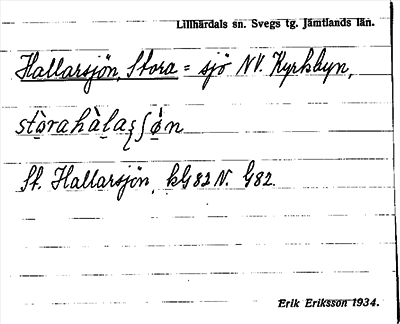 Lillhärdals sn. Svegs tg. Jämtlands län.
Hallarsjön, Stora = sjö NV. Kyrkbyn,
St. Hallarsjön, kG82 N. G82.
Erik Eriksson 1934.